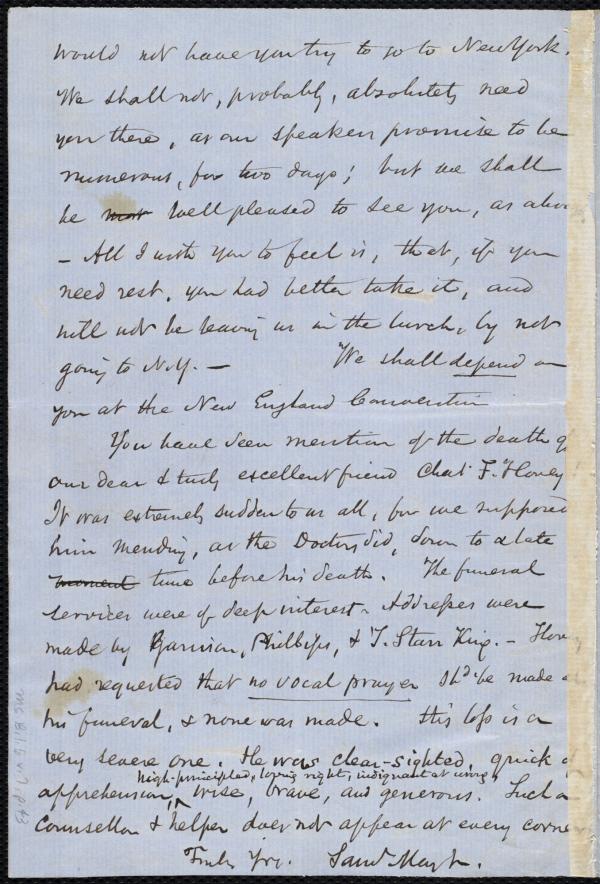 would not have you try to go to New York.
We shall not, probably, absolutely need
you there, as our speakers promise to be
numerous, for two days; but we shall
be not well pleased to see you, as abov
- All I wish you to feel is, that, if you
need rest, you had better take it, and
will not be leaving us in the lurch, by not
going to N.Y. — We shall depend on
you at the New England Convention
You have seen mention of the death of
our dear & truly excellent friend Chas. F. Hovey!
It was extremely sudden to us all, for we supposed
him mending, as the Doctors did, down to a late
moment time before his death. The funeral
services were of deep interest. Addresses were
made by Garrison, Phillips, & T. Starr King. - Hovey
had requested that no vocal prayer shd. be made a
his funeral, & none was made. His loss is a
very severe one. He was clear-sighted, quick of
high-principled, loving right, indignant at wrong,
apprehension, ^ wise, brave, and generous. Such a
Counsellor & helper does not appear at every corner
Truly Yrs. Saml. May Jr.